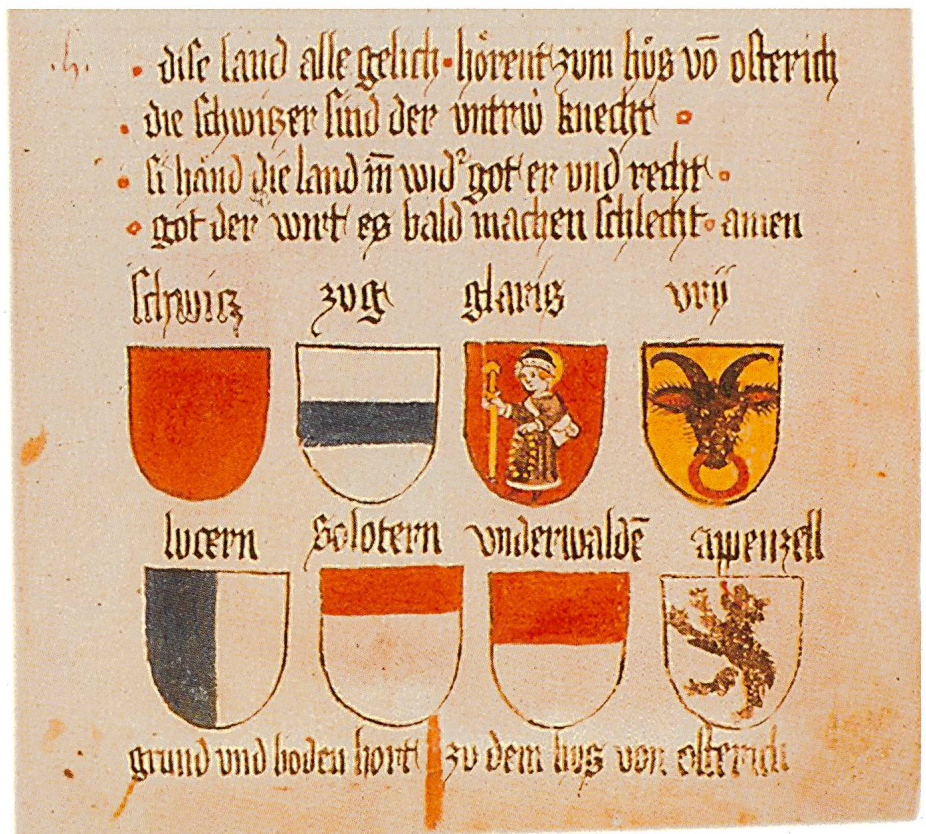 .h. · dise land alle gelich · hörent zum hůs vō osterich
· die schwitzer sind der vntrw̓ knecht ·
· si hand die land in̄ wid² got er vnd recht ·
· got der wirt es bald machen schlecht · amen
schwitz zug glaris vrÿ
lucern solotern vnderwaldē appenzell
grund vnd boden hort zu dem hus von osterich